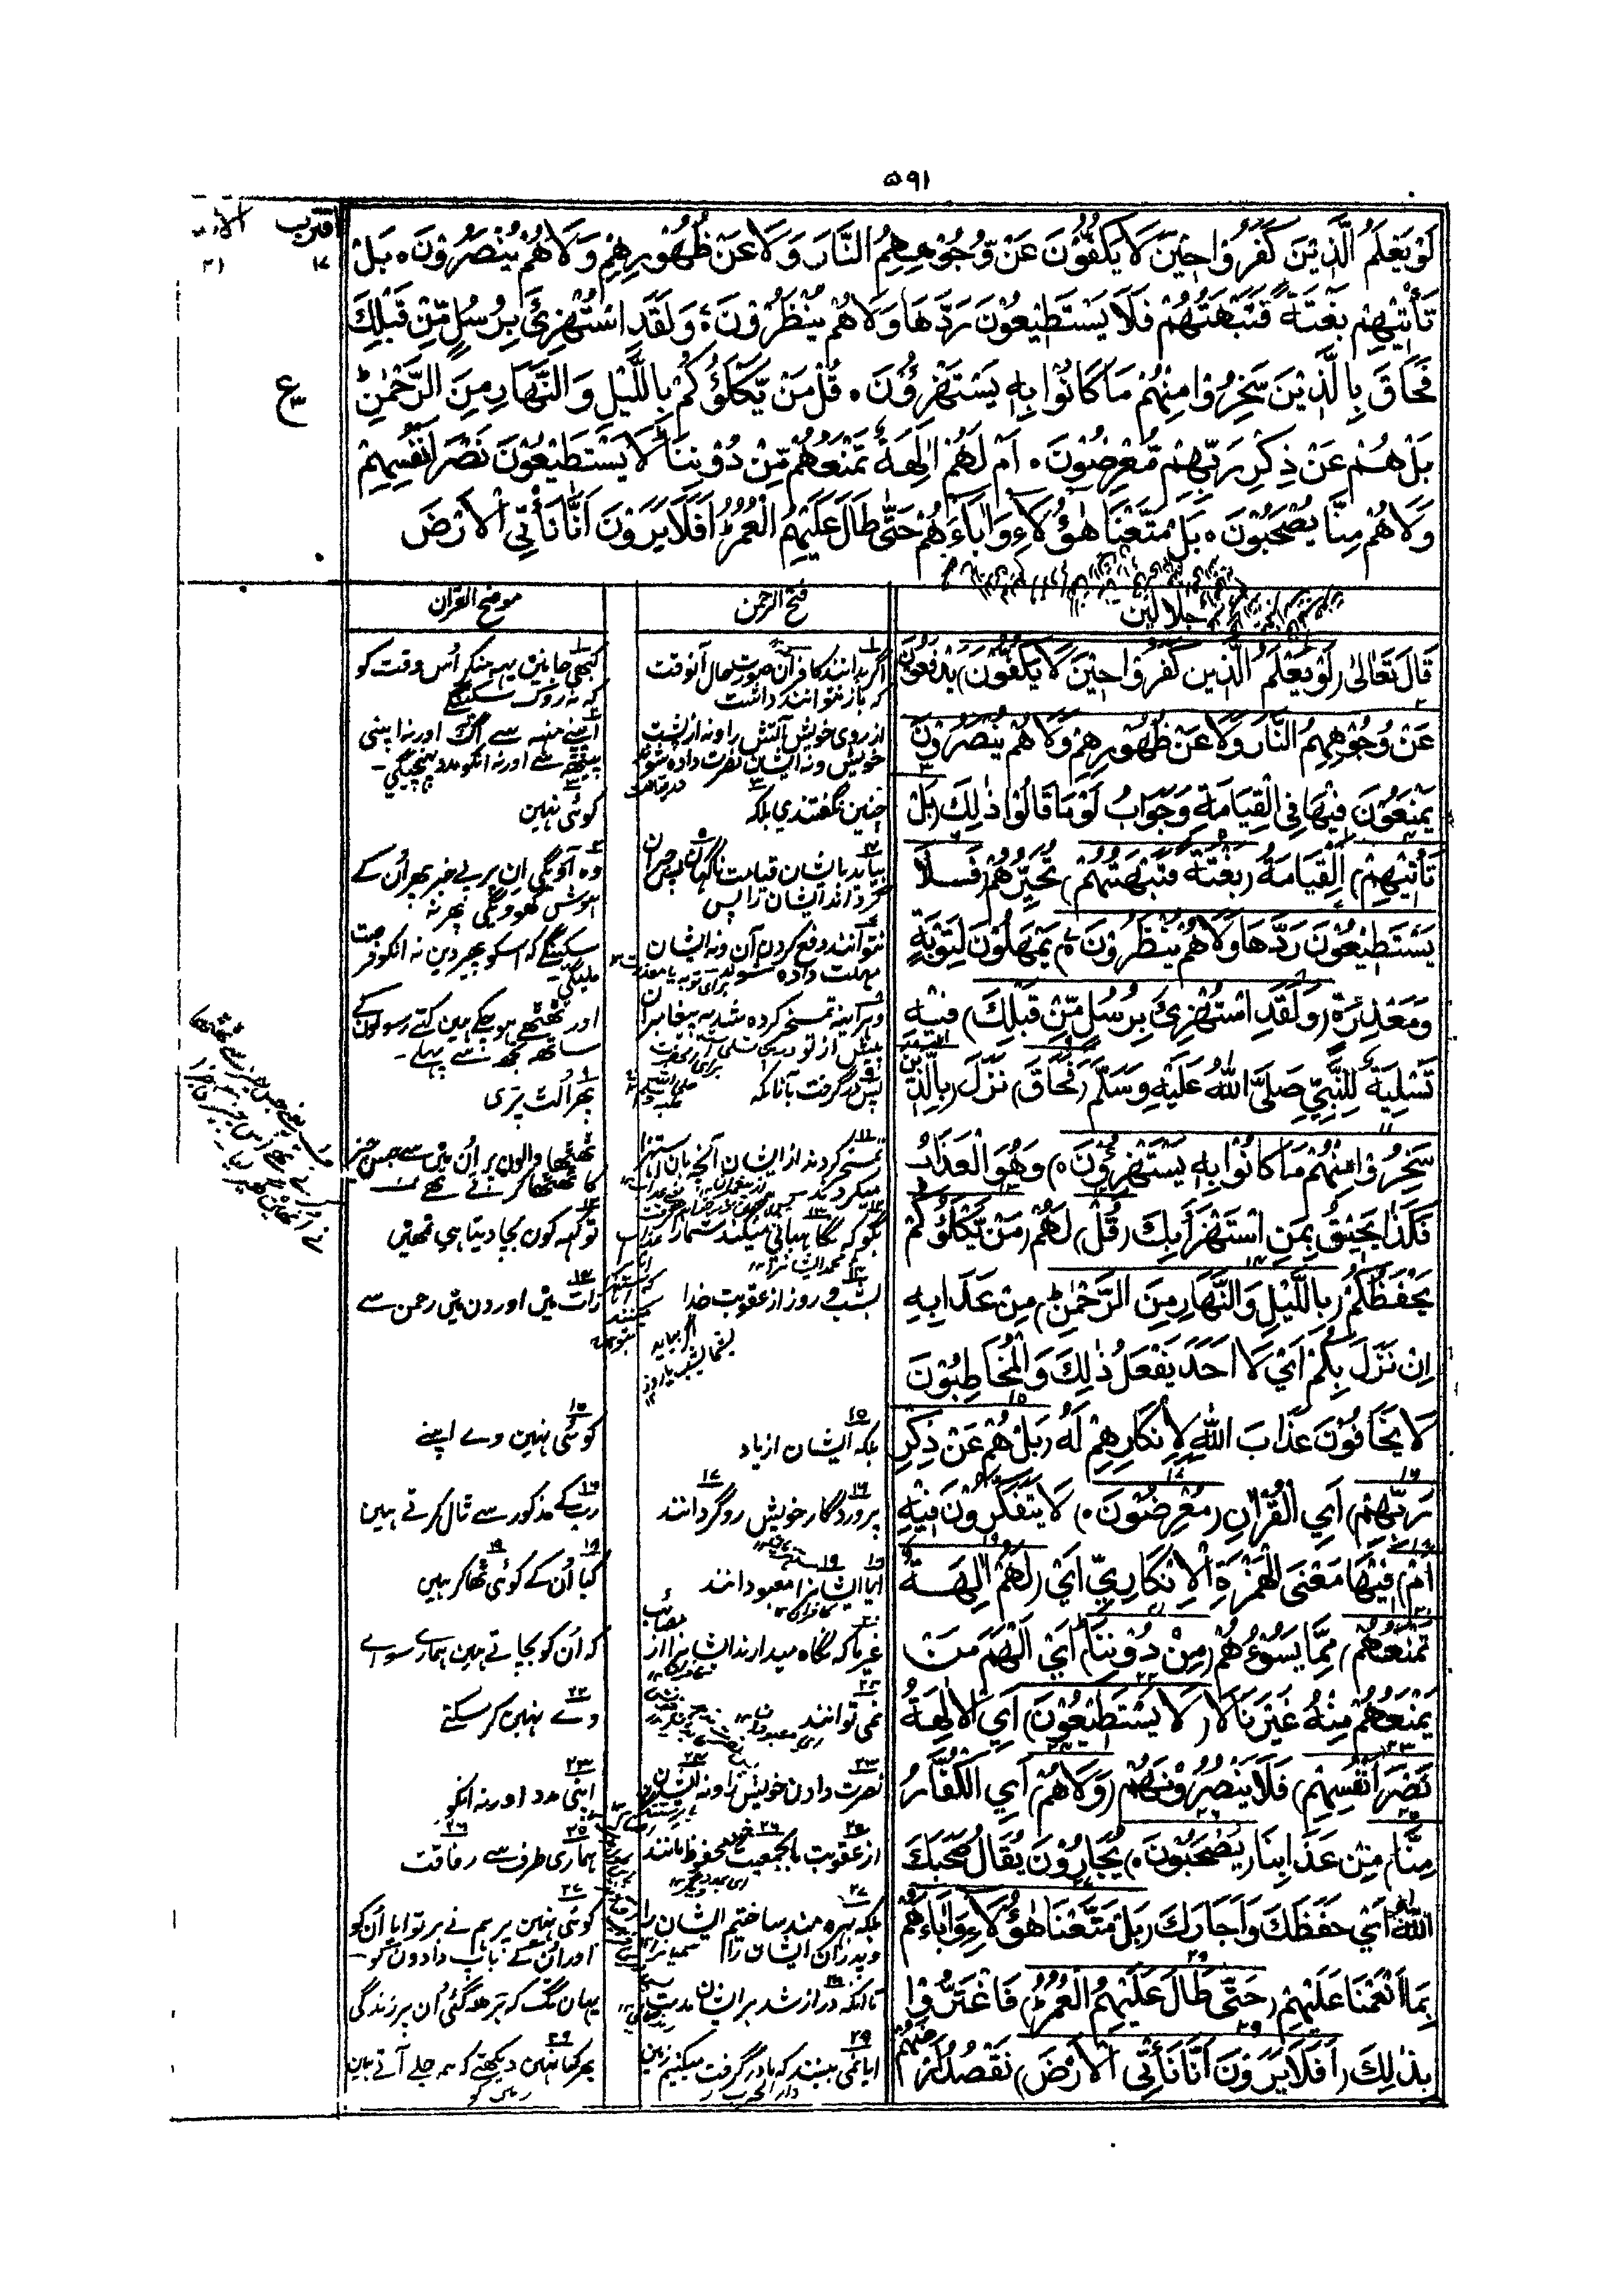 ٥٩١
اقترب ١٧
٢١
لَوْ يَعْلَمُ الَّذِيْنَ كَفَرُوْا حِيْنَ لَا يَكُفُّوْنَ عَنْ وُّجُوْهِهِمُ النَّارَ وَلَا عَنْ ظُهُوْرِهِمْ وَلَا هُمْ يُنْصَرُوْنَ ۰ بَلْ
تَأْتِيْهِمْ بَغْتَةً فَتَبْهَتُهُمْ فَلَا يَسْتَطِيْعُوْنَ رَدَّهَا وَلَا هُمْ يُنْظَرُوْنَ ۰ وَلَقَدِ اسْتُهْزِئَ بِرُسُلٍ مِّنْ قَبْلِكَ
فَحَاقَ بِالَّذِيْنَ سَخِرُوْا مِنْهُمْ مَا كَانُوْا بِهٖ يَسْتَهْزِءُوْنَ ۰ قُلْ مَنْ يَّكْلَؤُكُمْ بِاللَّيْلِ وَالنَّهَارِ مِنَ الرَّحْمٰنِ ط
ع
بَلْ هُمْ عَنْ ذِكْرِ رَبِّهِمْ مُّعْرِضُوْنَ ۰ اَمْ لَهُمْ اٰلِهَةٌ تَمْنَعُهُمْ مِّنْ دُوْنِنَا لَا يَسْتَطِيْعُوْنَ نَصْرَ اَنْفُسِهِمْ
وَلَا هُمْ مِنَّا يُصْحَبُوْنَ ۰ بَلْ مَتَّعْنَا هٰؤُلَاءِ وَاٰبَاءَهُمْ حَتّٰى طَالَ عَلَيْهِمُ الْعُمُرُ اَفَلَا يَرَوْنَ اَنَّا نَأْتِي الْاَرْضَ
جلالين
قَالَ تَعَالٰى (لَوْ يَعْلَمُ الَّذِيْنَ كَفَرُوْا حِيْنَ لَا يَكُفُّوْنَ) يَدْفَعُوْنَ
عَنْ وُجُوْهِهِمُ النَّارَ وَلَا عَنْ ظُهُوْرِهِمْ وَلَا هُمْ يُنْصَرُوْنَ
يُمْنَعُوْنَ فِيْهَا فِي الْقِيَامَةِ وَجَوَابُ لَوْ مَا قَالُوْا ذٰلِكَ (بَلْ
تَأْتِيْهِمْ) الْقِيَامَةُ (بَغْتَةً فَتَبْهَتُهُمْ) تُحَيِّرُهُمْ (فَلَا
يَسْتَطِيْعُوْنَ رَدَّهَا وَلَا هُمْ يُنْظَرُوْنَ) يُمْهَلُوْنَ لِتَوْبَةٍ
وَمَعْذِرَةٍ (وَلَقَدِ اسْتُهْزِئَ بِرُسُلٍ مِّنْ قَبْلِكَ) فِيْهِ
تَسْلِيَةٌ لِلنَّبِيِّ صَلَّى اللهُ عَلَيْهِ وَسَلَّمَ (فَحَاقَ) نَزَلَ (بِالَّذِيْنَ
سَخِرُوْا مِنْهُمْ مَا كَانُوْا بِهٖ يَسْتَهْزِءُوْنَ ۰) وَهُوَ الْعَذَابُ
فَكَذَا يَحِيْقُ بِمَنِ اسْتَهْزَأَ بِكَ (قُلْ) لَهُمْ (مَنْ يَّكْلَؤُكُمْ
يَحْفَظُكُمْ (بِاللَّيْلِ وَالنَّهَارِ مِنَ الرَّحْمٰنِ ط) مِنْ عَذَابِهٖ
اِنْ نَزَلَ بِكُمْ اَيْ لَا اَحَدَ يَفْعَلُ ذٰلِكَ وَالْمُخَاطَبُوْنَ
لَا يَخَافُوْنَ عَذَابَ اللهِ لِاِنْكَارِهِمْ لَهُ (بَلْ هُمْ عَنْ ذِكْرِ
رَبِّهِمْ) اَيِ الْقُرْاٰنِ (مُعْرِضُوْنَ ۰) لَا يَتَفَكَّرُوْنَ فِيْهِ
(اَمْ) فِيْهَا مَعْنَى الْهَمْزَةِ الْاِنْكَارِيِّ اَيْ (لَهُمْ اٰلِهَةٌ
تَمْنَعُهُمْ) مِمَّا يَسُوْءُهُمْ (مِنْ دُوْنِنَا) اَيْ اَلَهُمْ مَنْ
يَمْنَعُهُمْ مِنْهُ غَيْرَنَا لَا (لَا يَسْتَطِيْعُوْنَ) اَيِ الْاٰلِهَةُ
نَصْرَ اَنْفُسِهِمْ) فَلَا يَنْصُرُوْنَهُمْ (وَلَا هُمْ) اَيِ الْكُفَّارُ
مِنَّا) مِنْ عَذَابِنَا (يُصْحَبُوْنَ ۰) يُجَارُوْنَ يُقَالُ صَحِبَكَ
اللهُ اَيْ حَفِظَكَ وَاَجَارَكَ (بَلْ مَتَّعْنَا هٰؤُلَاءِ وَاٰبَاءَهُمْ
بِمَا اَنْعَمْنَا عَلَيْهِمْ (حَتّٰى طَالَ عَلَيْهِمُ الْعُمُرُ ط) فَاغْتَرُّوْا
بِذٰلِكَ (اَفَلَا يَرَوْنَ اَنَّا نَأْتِي الْاَرْضَ) نَقْصُدُ اَرْضَهُمْ
فتح الرحمن
اگر بدانند کافران صورت حال آنوقت
که باز نتوانند داشت
از روی خویش آتش را و نه از پشت
خویش و نه ایشان نصرت داده شوند
چنین نگفتندی بلکه
بیاید بایشان قیامت ناگهان پس حیران
گرداند ایشان را پس
نتوانند دفع کردن آن و نه ایشان
مهلت داده شوند
و هر آینه تمسخر کرده شد به پیغامبران
پیش از تو
پس درگرفت بآنانکه
تمسخر کردند از ایشان آنچه بآن استهزا
میکردند
بگو که نگاهبانی میکند شما را
بشب و روز از عقوبت خدا
بلکه ایشان از یاد
پروردگار خویش روگردانند
آیا ایشانرا معبودانند
غیر ما که نگاه میدارند ایشانرا از
نمی توانند
نصرت دادن خویش را و نه ایشان
از عقوبت ما بجمعیت محفوظ مانند
بلکه بهره مند ساختیم ایشان را
و پدران ایشان را
تا آنکه دراز شد بر ایشان مدت
آیا نمی بینند که ما درگرفت میکنیم زمین
دار الحرب
موضح القرآن
کبھی جانیں یہ منکر اُس وقت کو
که نه روک سکینگے
اپنے منہہ سے آگ اور نه اپنی
پیٹھہ سے اور نه انکو مدد پہنچیگی -
کوئی نہین
وه آویگی ان پر بے خبر پھر اُن کے
ہوش کھوویگی پھر نه
سکینگے که اسکو پھیر دین نه انکو فرصت
ملیگی -
اور ٹھٹھے ہوچکے ہین کتے رسولون کے
ساتھه تجھه سے پہلے -
پھر اُلٹ پڑی
ٹھٹھا والون پر اُن مین سے جس چیز
کا ٹھٹھا کرتے تھے
تو کہه کون بچا دیتا ہی تمھین
رات مین اور دن مین رحمن سے
کوئی نہین وے اپنے
رب کے مذکور سے ٹال کرتے ہین
کیا اُن کے کوئی ٹھاکر ہین
که اُن کو بچاتے ہین ہمارے سوائے
وے نہین کر سکتے
اپنی مدد اور نه انکو
ہماری طرف سے رفاقت
کوئی نہین پر ہم نے برتوایا اُن کو
اور اُن کے باپ دادون کو -
یہان تک که بڑھه گئی اُن پر زندگی
پھر کیا نہین دیکھتے که ہم چلے آتے ہین